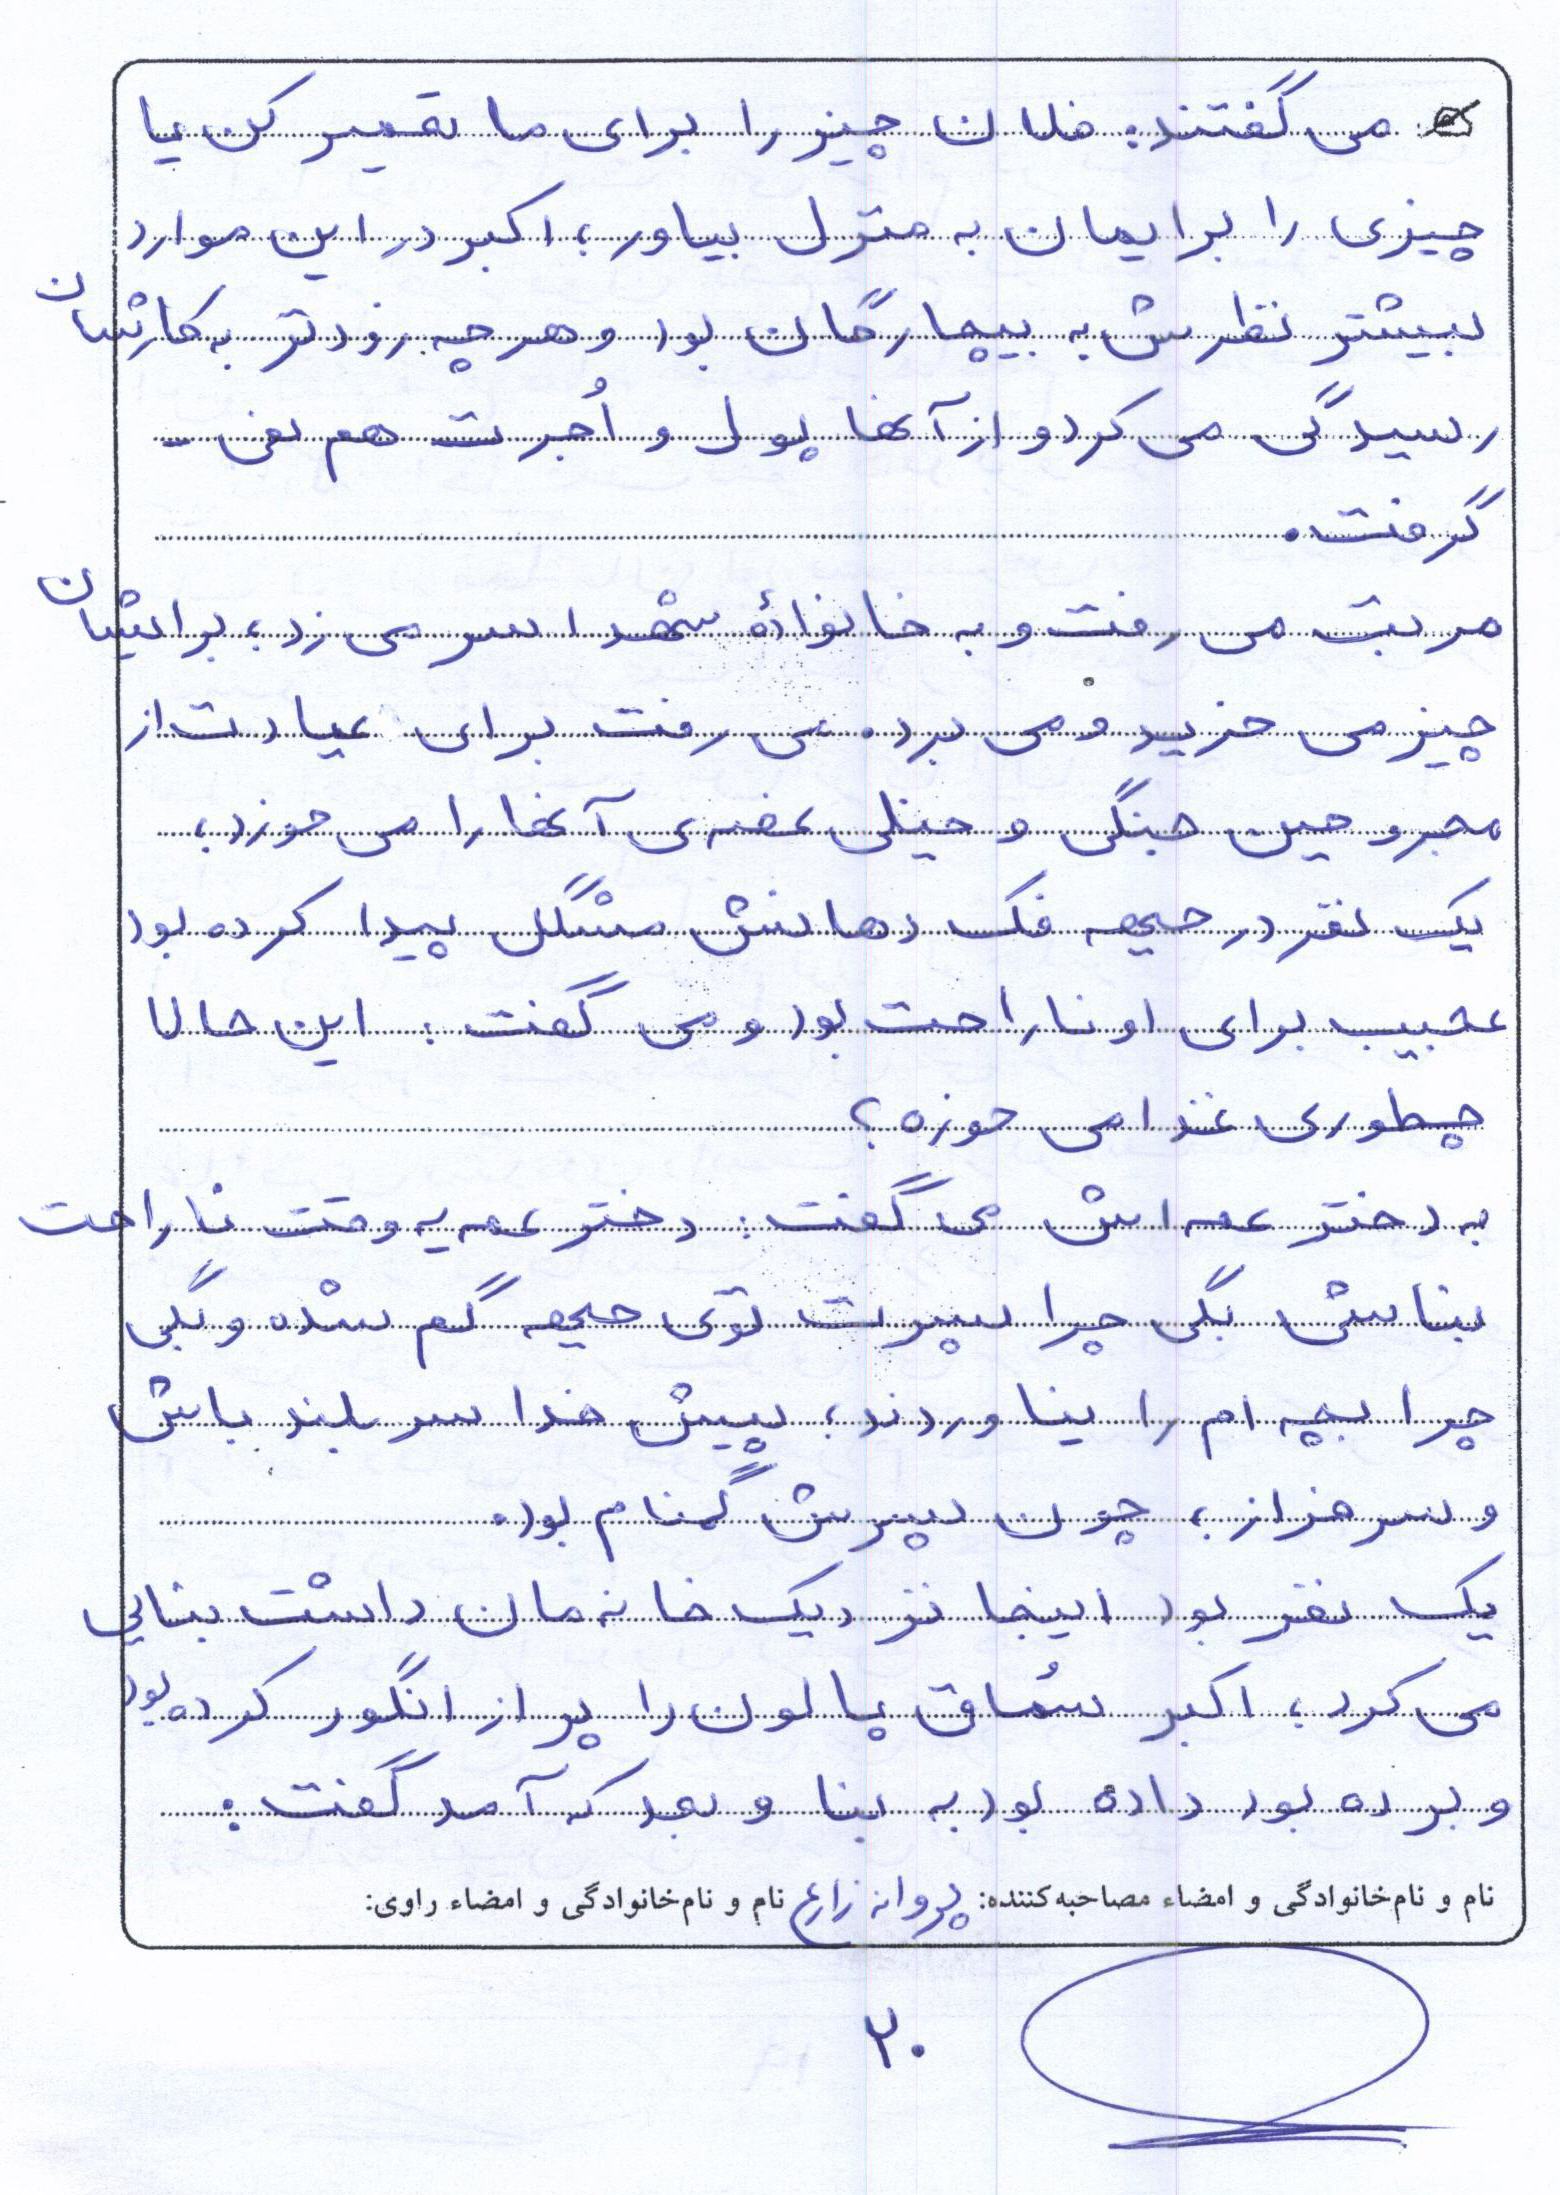 می گفتند: فلان چیز را برای ما تعمیر کن یا
چیزی را برایمان به منزل بیاور؛ اکبر در این موارد
بیشتر نظرش به بیچارگان بود و هر چه زودتر به کارشان
رسیدگی می کرد و از آنها پول و اُجرت هم نمی -
گرفت.
مرتب می رفت و به خانوادهٔ شهدا سر می زد؛ برایشان
چیز می خرید و می برد. می رفت برای عیادت از
مجروحین جنگی و خیلی غصه ی آنها را می خورد؛
یک نفر در جبهه فک دهانش مشکل پیدا کرده بود
عجیب برای او ناراحت بود و می گفت: این حالا
چطوری غذا می خوره؟
به دختر عمه اش می گفت: دختر عمه یه وقت ناراحت
نباشی بگی چرا پسرت توی جبهه گم شده و بگی
چرا بچه ام را نیاوردند؛ پیش خدا سربلند باش
و سرفراز؛ چون پسرش گمنام بود.
یک نفر بود اینجا نزدیک خانه مان داشت بنایی
می کرد؛ اکبر سُماق پالون را پر از انگور کرده بود
و برده بود داده بود به بنا و بعد که آمد گفت:
نام و نام‌خانوادگی و امضاء مصاحبه‌کننده: پروانه زارع نام و نام‌خانوادگی و امضاء راوی:
۲۰